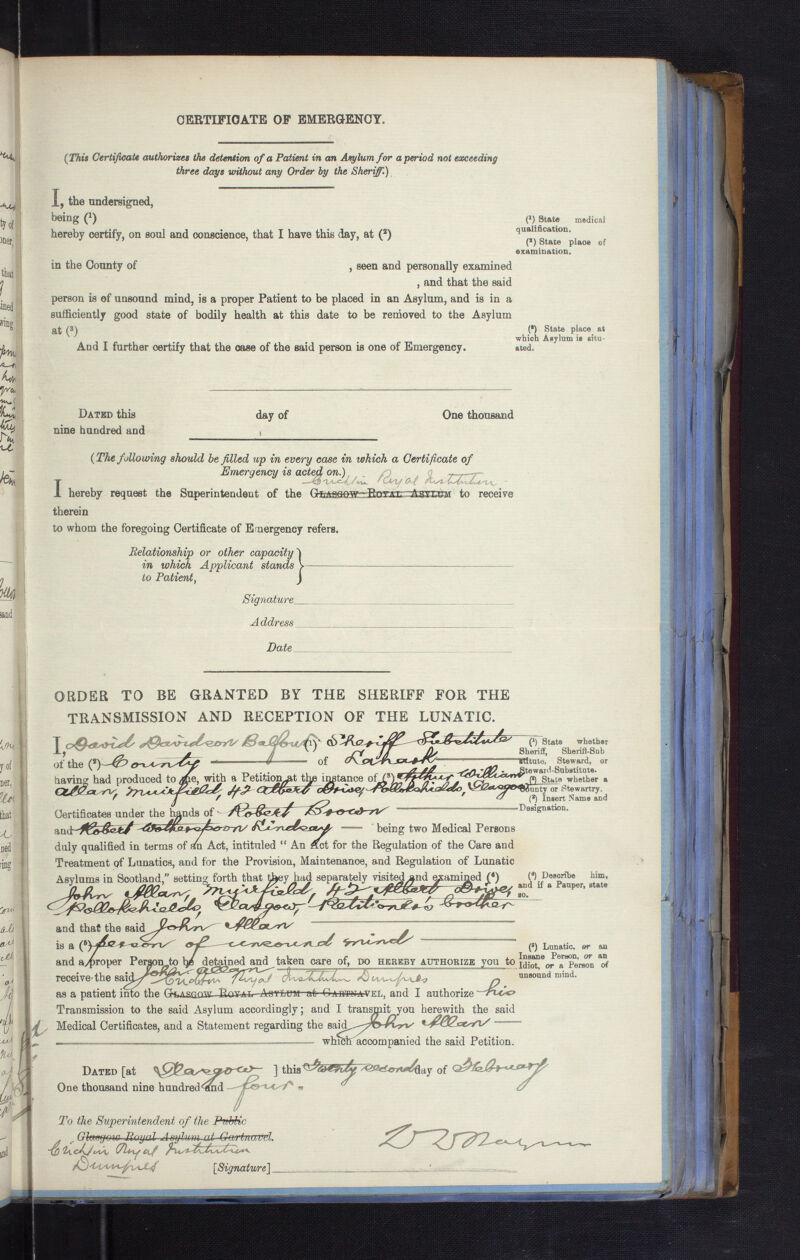 CERTIFICATE OF EMERGENCY.
(This Certificate authorizes the detention of a Patient in an Asylum for a period not exceeding
three days without any Order by the Sheriff.)
I, the undersigned,
being (1)
hereby certify, on soul and conscience, that I have this day, at (2)
(1) State medical
qualification.
(2) State place of
examination.
in the County of , seen and personally examined
, and that the said
person is of unsound mind, is a proper Patient to be placed in an Asylum, and is in a
sufficiently good state of bodily health at this date to be removed to the Asylum
at (3)
(3) State place at
which Asylum is situ-
ated.
And I further certify that the case of the said person is one of Emergency.
DATED this day of One thousand
nine hundred and
(The following should be filled up in every case in which a Certificate of
Emergency is acted on.)
Crichton Royal Institution
I hereby request the Superintendent of the GLASGOW ROYAL ASYLUM to receive
therein
to whom the foregoing Certificate of Emergency refers.
Relationship or other capacity
in which Applicant stands
to Patient,
Signature
Address
Date
ORDER TO BE GRANTED BY THE SHERIFF FOR THE
TRANSMISSION AND RECEPTION OF THE LUNATIC.
I, David Davidson Balfour (1) Sheriff Substitute
of the (2) County of Lanark
having had produced to me, with a Petition at the instance of (3) Arthur William
Allan, Muirfield, 42 Albert Drive, Pollokshields, Glasgow
(1) State whether
Sheriff, Sheriff-Sub
stitute, Steward, or
Steward-Substitute.
(2) State whether a
County or Stewartry.
(3) Insert Name and
Designation.
Certificates under the hands of Robert Brown
and Robert Wotherspoon Lindsay being two Medical Persons
duly qualified in terms of an Act, intituled " An Act for the Regulation of the Care and
Treatment of Lunatics, and for the Provision, Maintenance, and Regulation of Lunatic
Asylums in Scotland," setting forth that they had separately visited and examined (4)
John Allan, Muirfield, 42 Albert Drive,
Pollokshields, Glasgow, Petitioner's brother
(4) Describe him,
and if a Pauper, state
so.
and that the said John Allan
is a (5) person of unsound mind
and a proper Person to be detained and taken care of, DO HEREBY AUTHORIZE you to
(5) Lunatic, or an
Insane Person, or an
Idiot, or a Person of
unsound mind.
receive the said John Allan
Crichton Royal Institution Dumfries
as a patient into the GLASGOW ROYAL ASYLUM at GARTNAVEL, and I authorize his
Transmission to the said Asylum accordingly; and I transmit you herewith the said
Medical Certificates, and a Statement regarding the said John Allan
which accompanied the said Petition.
DATED [at Glasgow ] this Twenty second day of February
One thousand nine hundred and four.
To the Superintendent of the Public
Glasgow Royal Asylum at Gartnavel.
Crichton Royal Institution
Dumfries
[Signature]